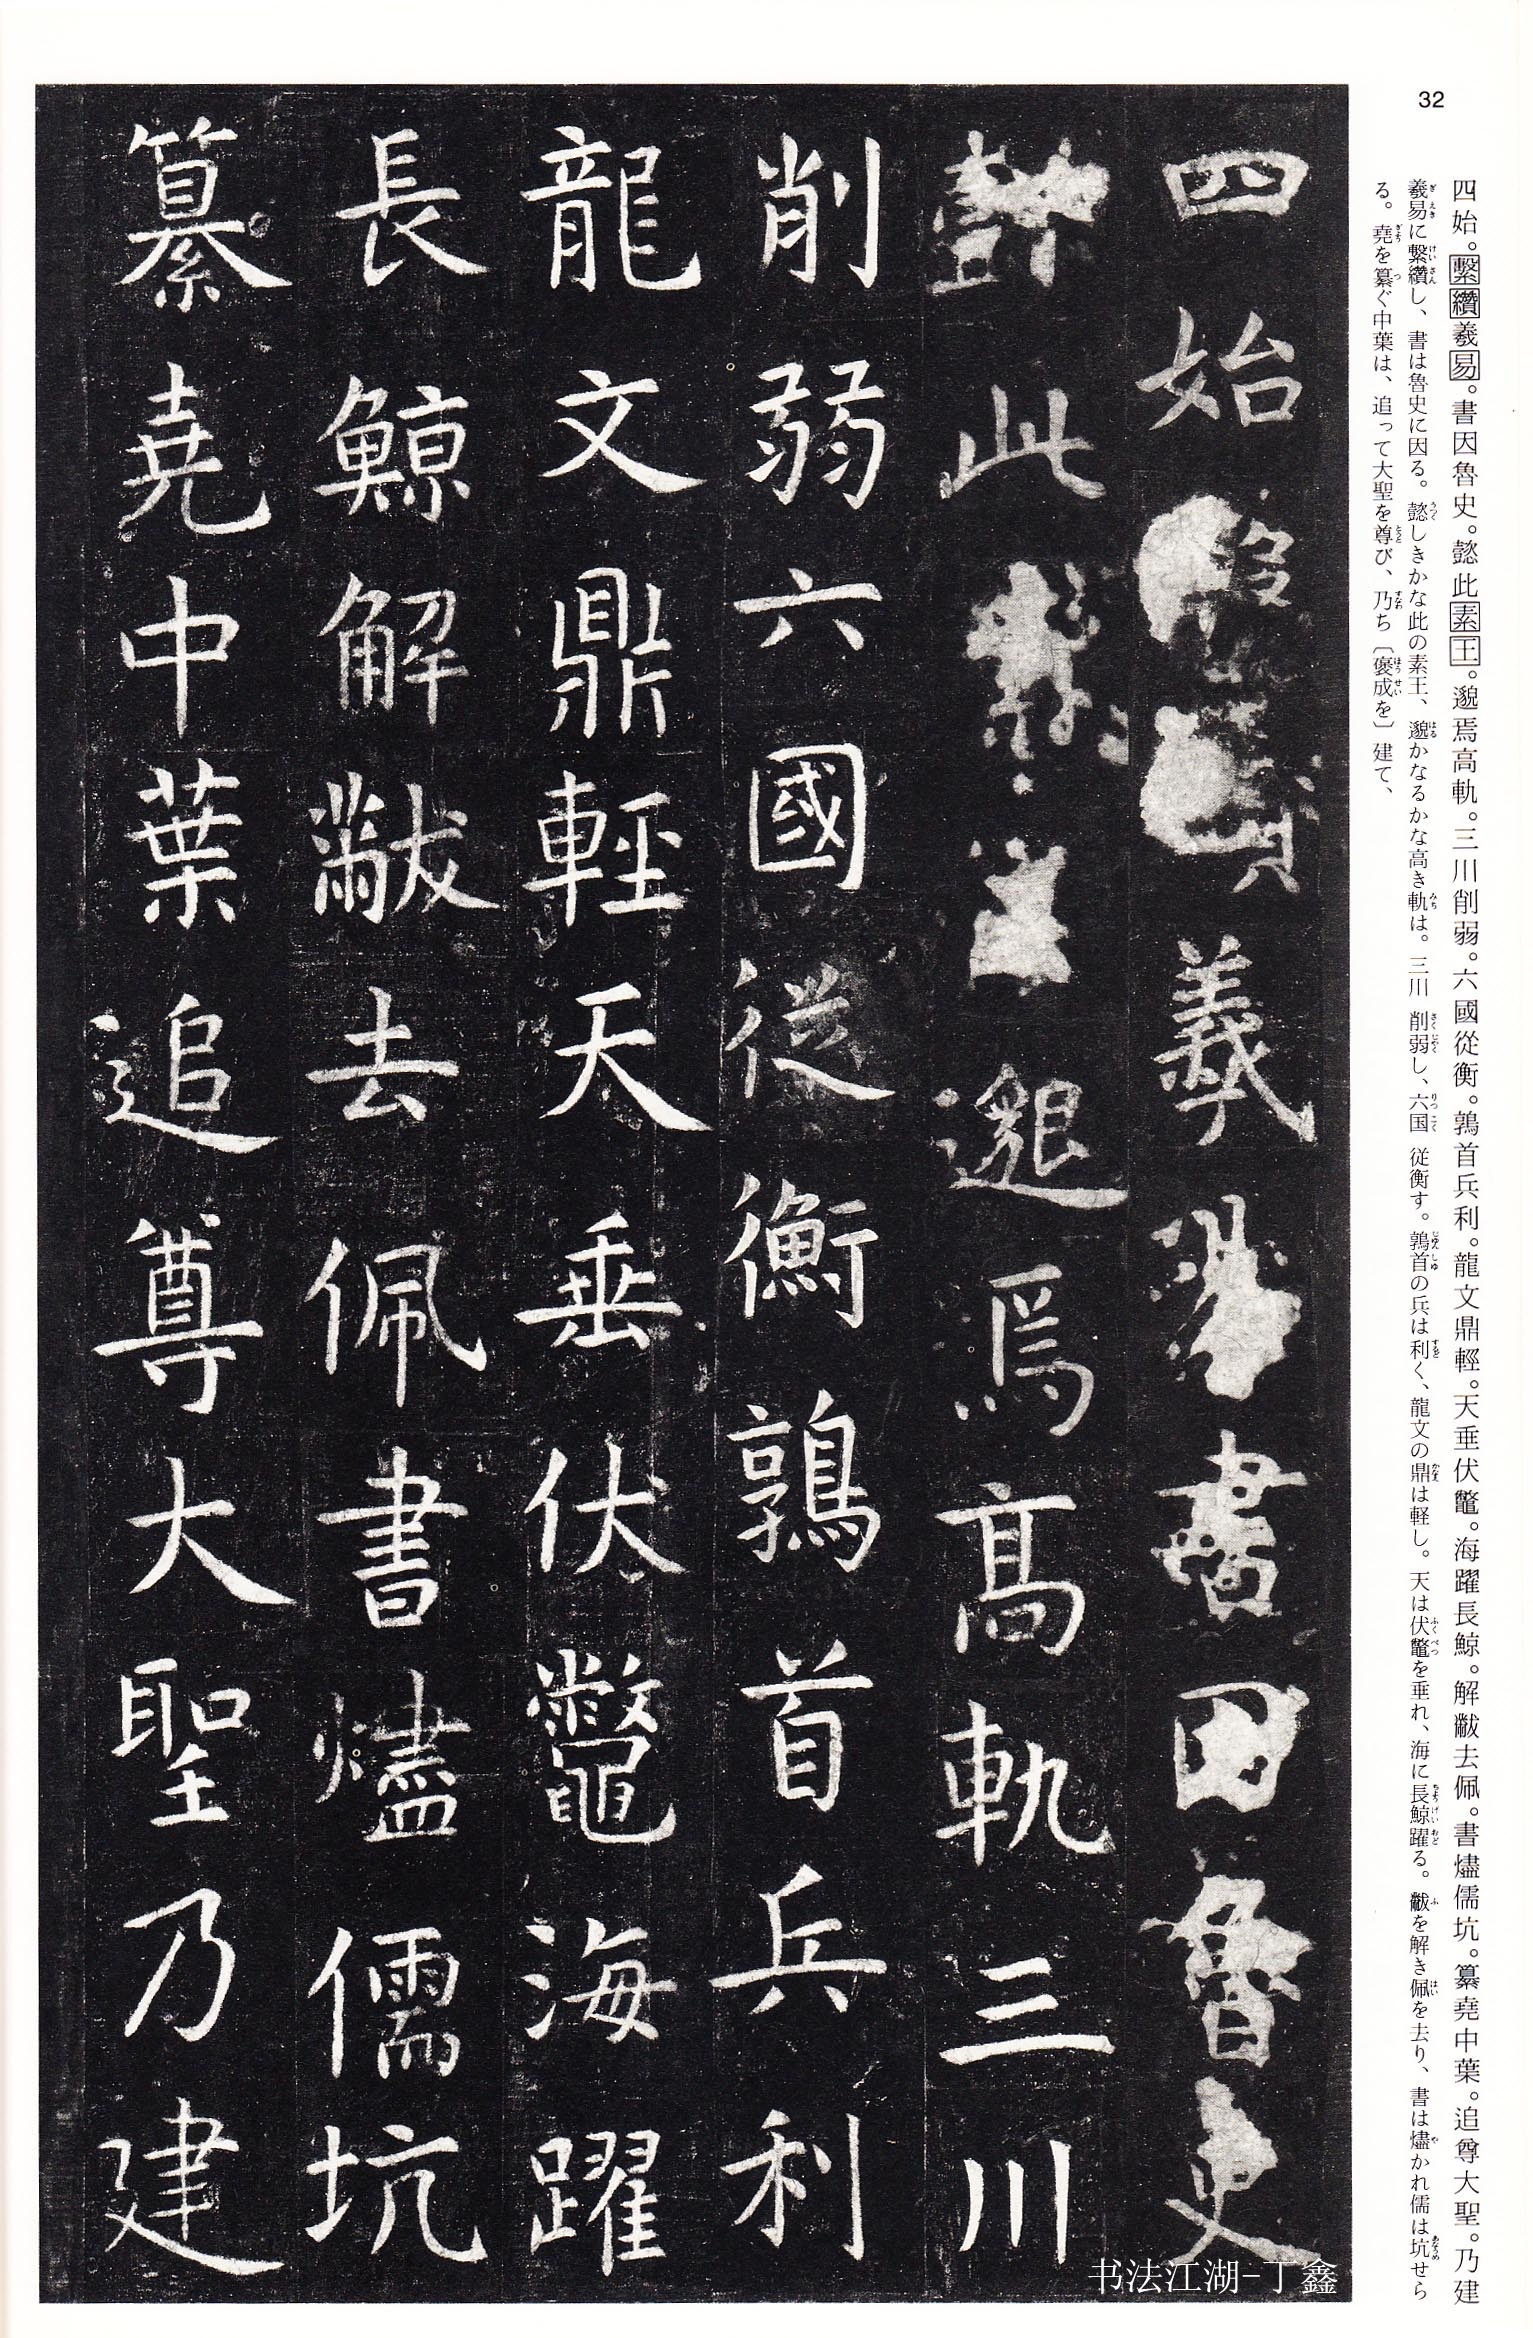 32
四始。繫纘羲易。書因魯史。懿此素王。邈焉高軌。三川削弱。六國從衡。鶉首兵利。龍文鼎輕。天垂伏鼈。海躍長鯨。解黻去佩。書燼儒坑。纂堯中葉。追尊大聖。乃建
羲易に繫纘し、書は魯史に因る。懿しきかな此の素王、邈かなるかな高き軌は。三川削弱し、六国従衡す。鶉首の兵は利く、龍文の鼎は軽し。天は伏鼈を垂れ、海に長鯨躍る。黻を解き佩を去り、書は燼かれ儒は坑せら
る。堯を纂ぐ中葉は、追って大聖を尊び、乃ち〔褒成を〕建て、
四始羲書因魯史
此邈焉高軌三川
削弱六國從衡鶉首兵利
龍文鼎輕天垂伏鼈海躍
長鯨解黻去佩書燼儒坑
纂堯中葉追尊大聖乃建
书法江湖-丁鑫